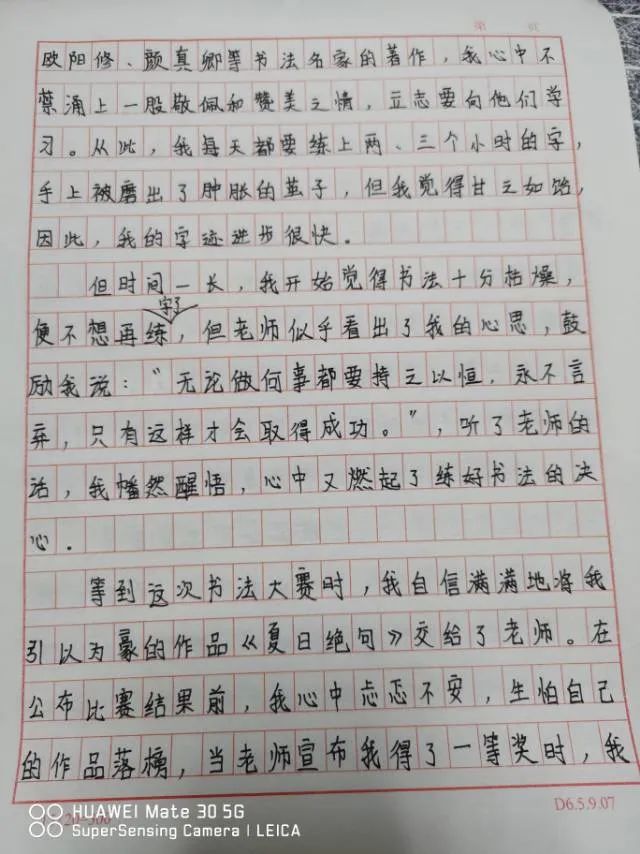 第 页
欧阳修、颜真卿等书法名家的著作，我心中不
禁涌上一股敬佩和赞美之情，立志要向他们学
习。从此，我每天都要练上两、三个小时的字，
手上被磨出了肿胀的茧子，但我觉得甘之如饴，
因此，我的字迹进步很快。
但时间一长，我开始觉得书法十分枯燥，
字了
便不想再练，但老师似乎看出了我的心思，鼓
励我说：“无论做何事都要持之以恒，永不言
弃，只有这样才会取得成功。”，听了老师的
话，我幡然醒悟，心中又燃起了练好书法的决
心。
等到这次书法大赛时，我自信满满地将我
引以为豪的作品《夏日绝句》交给了老师。在
公布比赛结果前，我心中忐忑不安，生怕自己
的作品落榜，当老师宣布我得了一等奖时，我
D6.5.9.07
HUAWEI Mate 30 5G
SuperSensing Camera | LEICA